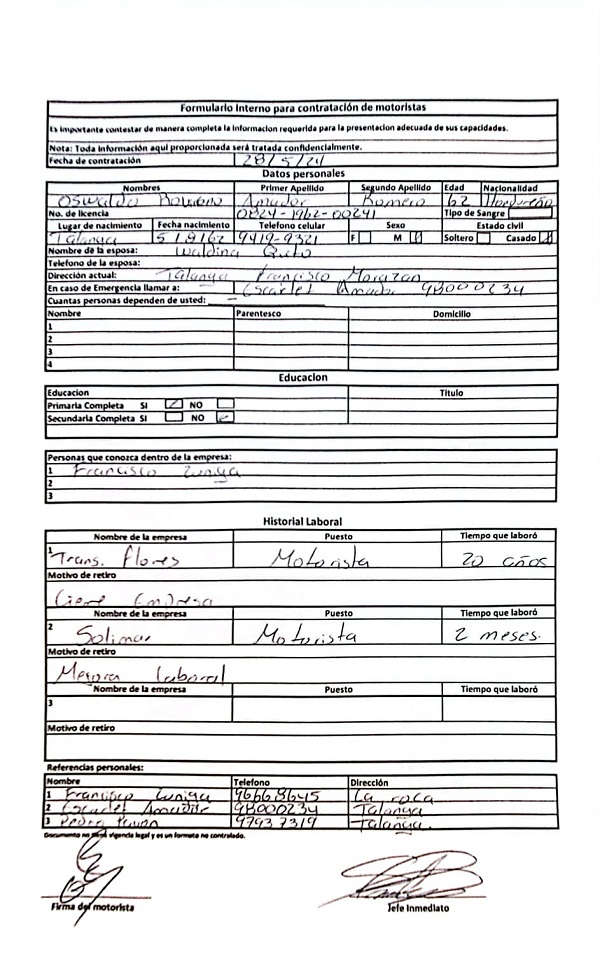 Formulario Interno para contratación de motoristas
Es importante contestar de manera completa la informacion requerida para la presentacion adecuada de sus capacidades.
Nota: Toda información aquí proporcionada será tratada confidencialmente.
Fecha de contratación 28/5/24
Datos personales
Nombres Primer Apellido Segundo Apellido Edad Nacionalidad
Oswaldo Amador Romero 62 Hondureño
No. de licencia 0824-1962-00241 Tipo de Sangre
Lugar de nacimiento Fecha nacimiento Telefono celular Sexo Estado civil
Talanga 5/8/62 9419-9321 F M Soltero Casado
Nombre de la esposa: Waldina
Telefono de la esposa:
Dirección actual: Talanga Francisco Morazan
En caso de Emergencia llamar a: Escarlet Amador 98000234
Cuantas personas dependen de usted: —
Nombre Parentesco Domicilio
1
2
3
4
Educacion
Educacion Titulo
Primaria Completa SI NO
Secundaria Completa SI NO
Personas que conozca dentro de la empresa:
1 Francisco Zuniga
2
3
Historial Laboral
Nombre de la empresa Puesto Tiempo que laboró
1 Trans. Flores Motorista 20 años
Motivo de retiro
Cierre Empresa
Nombre de la empresa Puesto Tiempo que laboró
2 Solimar Motorista 2 meses.
Motivo de retiro
Mejora laboral
Nombre de la empresa Puesto Tiempo que laboró
3
Motivo de retiro
Referencias personales:
Nombre Telefono Dirección
1 Francisco Zuniga 96668645 La roca
2 Escarlet Amador 98000234 Talanga
3 Pedro Pavon 97937319 Talanga.
Documento no tiene vigencia legal y es un formato no controlado.
Firma del motorista Jefe Inmediato